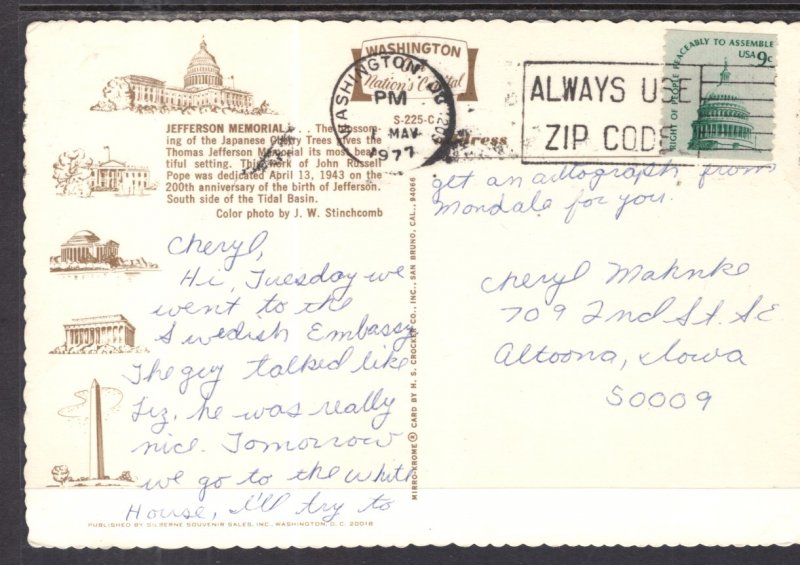 WASHINGTON
Nation's Capital
S-225-C
JEFFERSON MEMORIAL
ing of the Japanese Cherry Trees gives the
Thomas Jefferson Memorial its most beau-
tiful setting. This work of John Russell
Pope was dedicated April 13, 1943 on the
200th anniversary of the birth of Jefferson.
South side of the Tidal Basin.
Color photo by J. W. Stinchcomb
WASHINGTON
PM
MAY
1977
ALWAYS USE
ZIP CODE
RIGHT OF PEOPLE PEACEABLY TO ASSEMBLE
USA 9c
Cheryl,
Hi, Tuesday we
went to the
Swedish Embassy
The guy talked like
Liz, he was really
nice. Tomorrow
we go to the White
House, I'll try to
get an autograph from
Mondale for you.
Cheryl Mahnke
709 2nd St. SE
Altoona, Iowa
50009
MIRRO-KROME® CARD BY H. S. CROCKER CO., INC., SAN BRUNO, CAL., 94066
PUBLISHED BY SILBERNE SOUVENIR SALES, INC., WASHINGTON, D. C. 20018